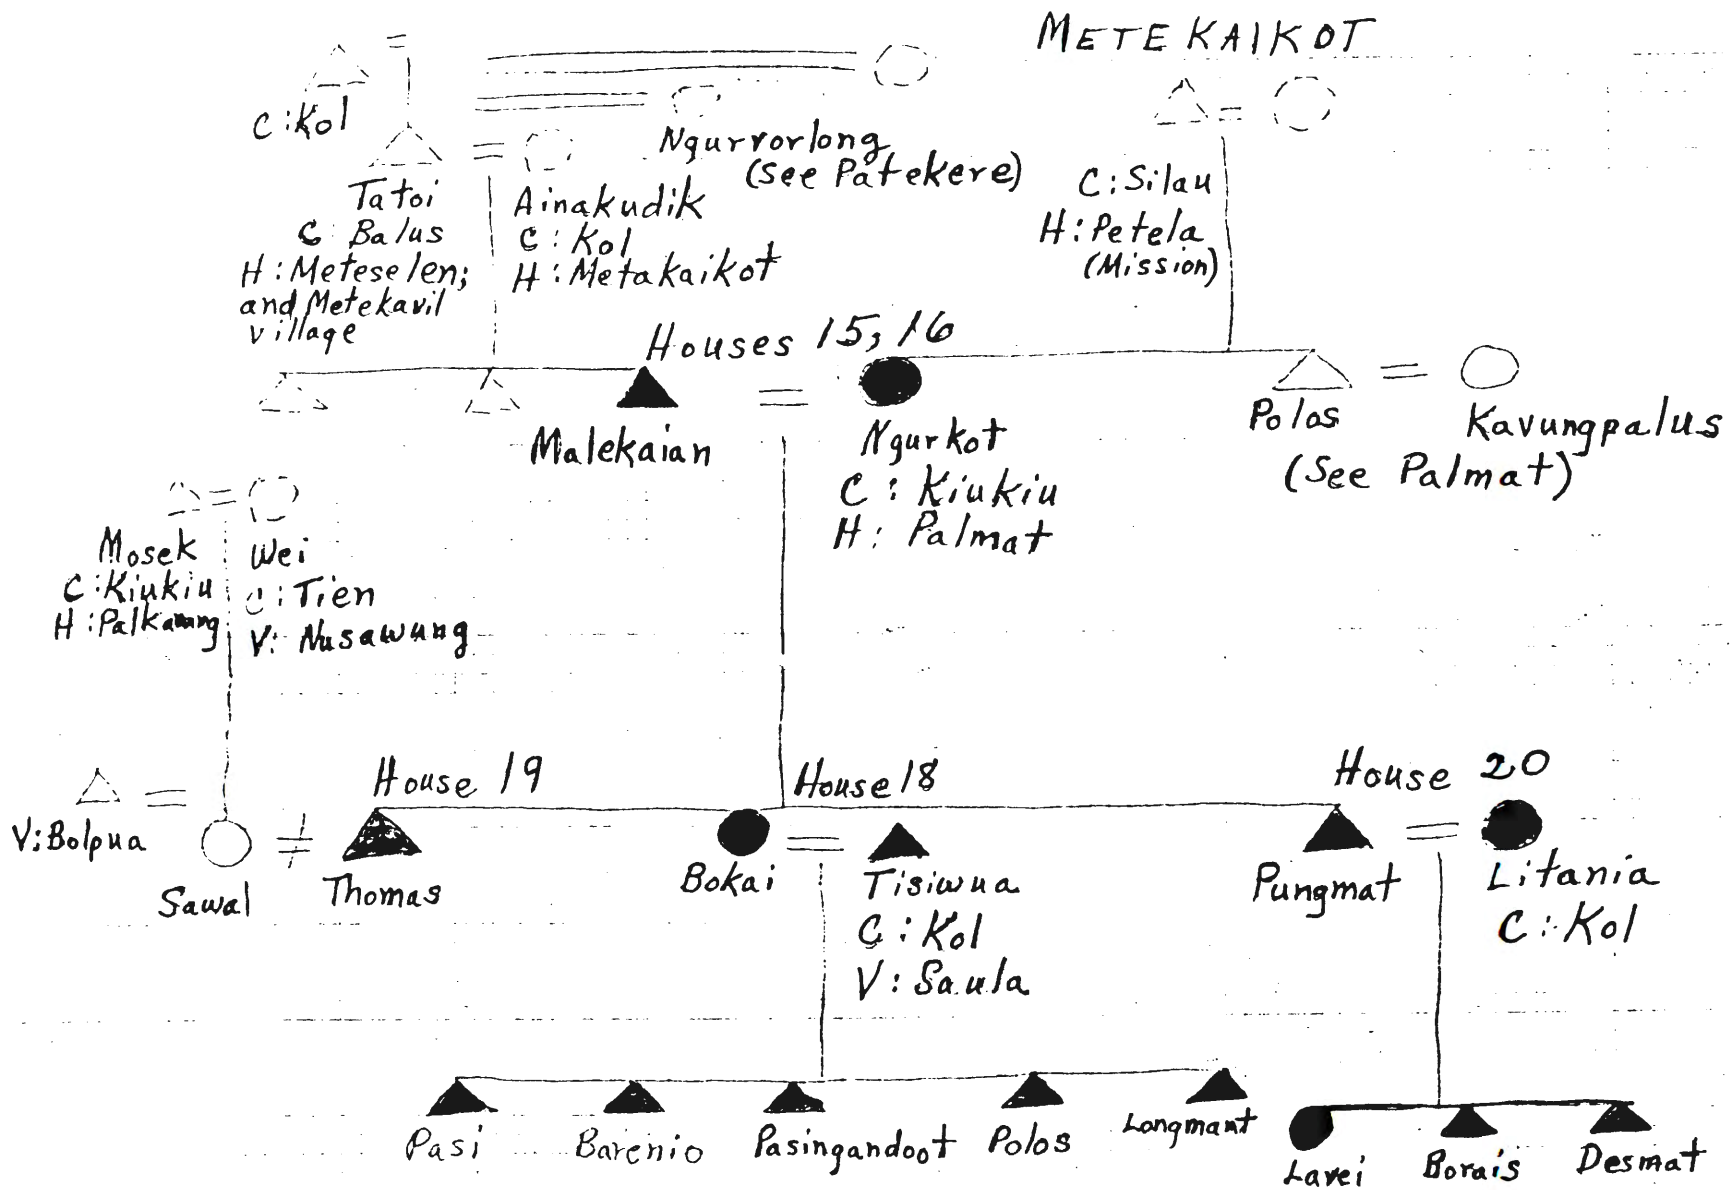 METEKAIKOT
C:Kol
Ngurrorlong
(See Patekere)
Tatoi
C: Balus
H: Meteselen;
and Metekavil
village
Ainakudik
C: Kol
H: Metakaikot
C: Silau
H: Petela
(Mission)
Houses 15, 16
Malekaian
Ngurkot
C: Kiukiu
H: Palmat
Polos
Kavungpalus
(See Palmat)
Mosek
C:Kiukiu
Wei
C:Tien
V: Nusawung
House 19
House 18
House 20
V:Bolpua
Sawal
Thomas
Bokai
Tisiwua
C: Kol
V: Saula
Pungmat
Litania
C: Kol
Pasi
Barenio
Pasingandoot
Polos
Longmant
Lavei
Borais
Desmat